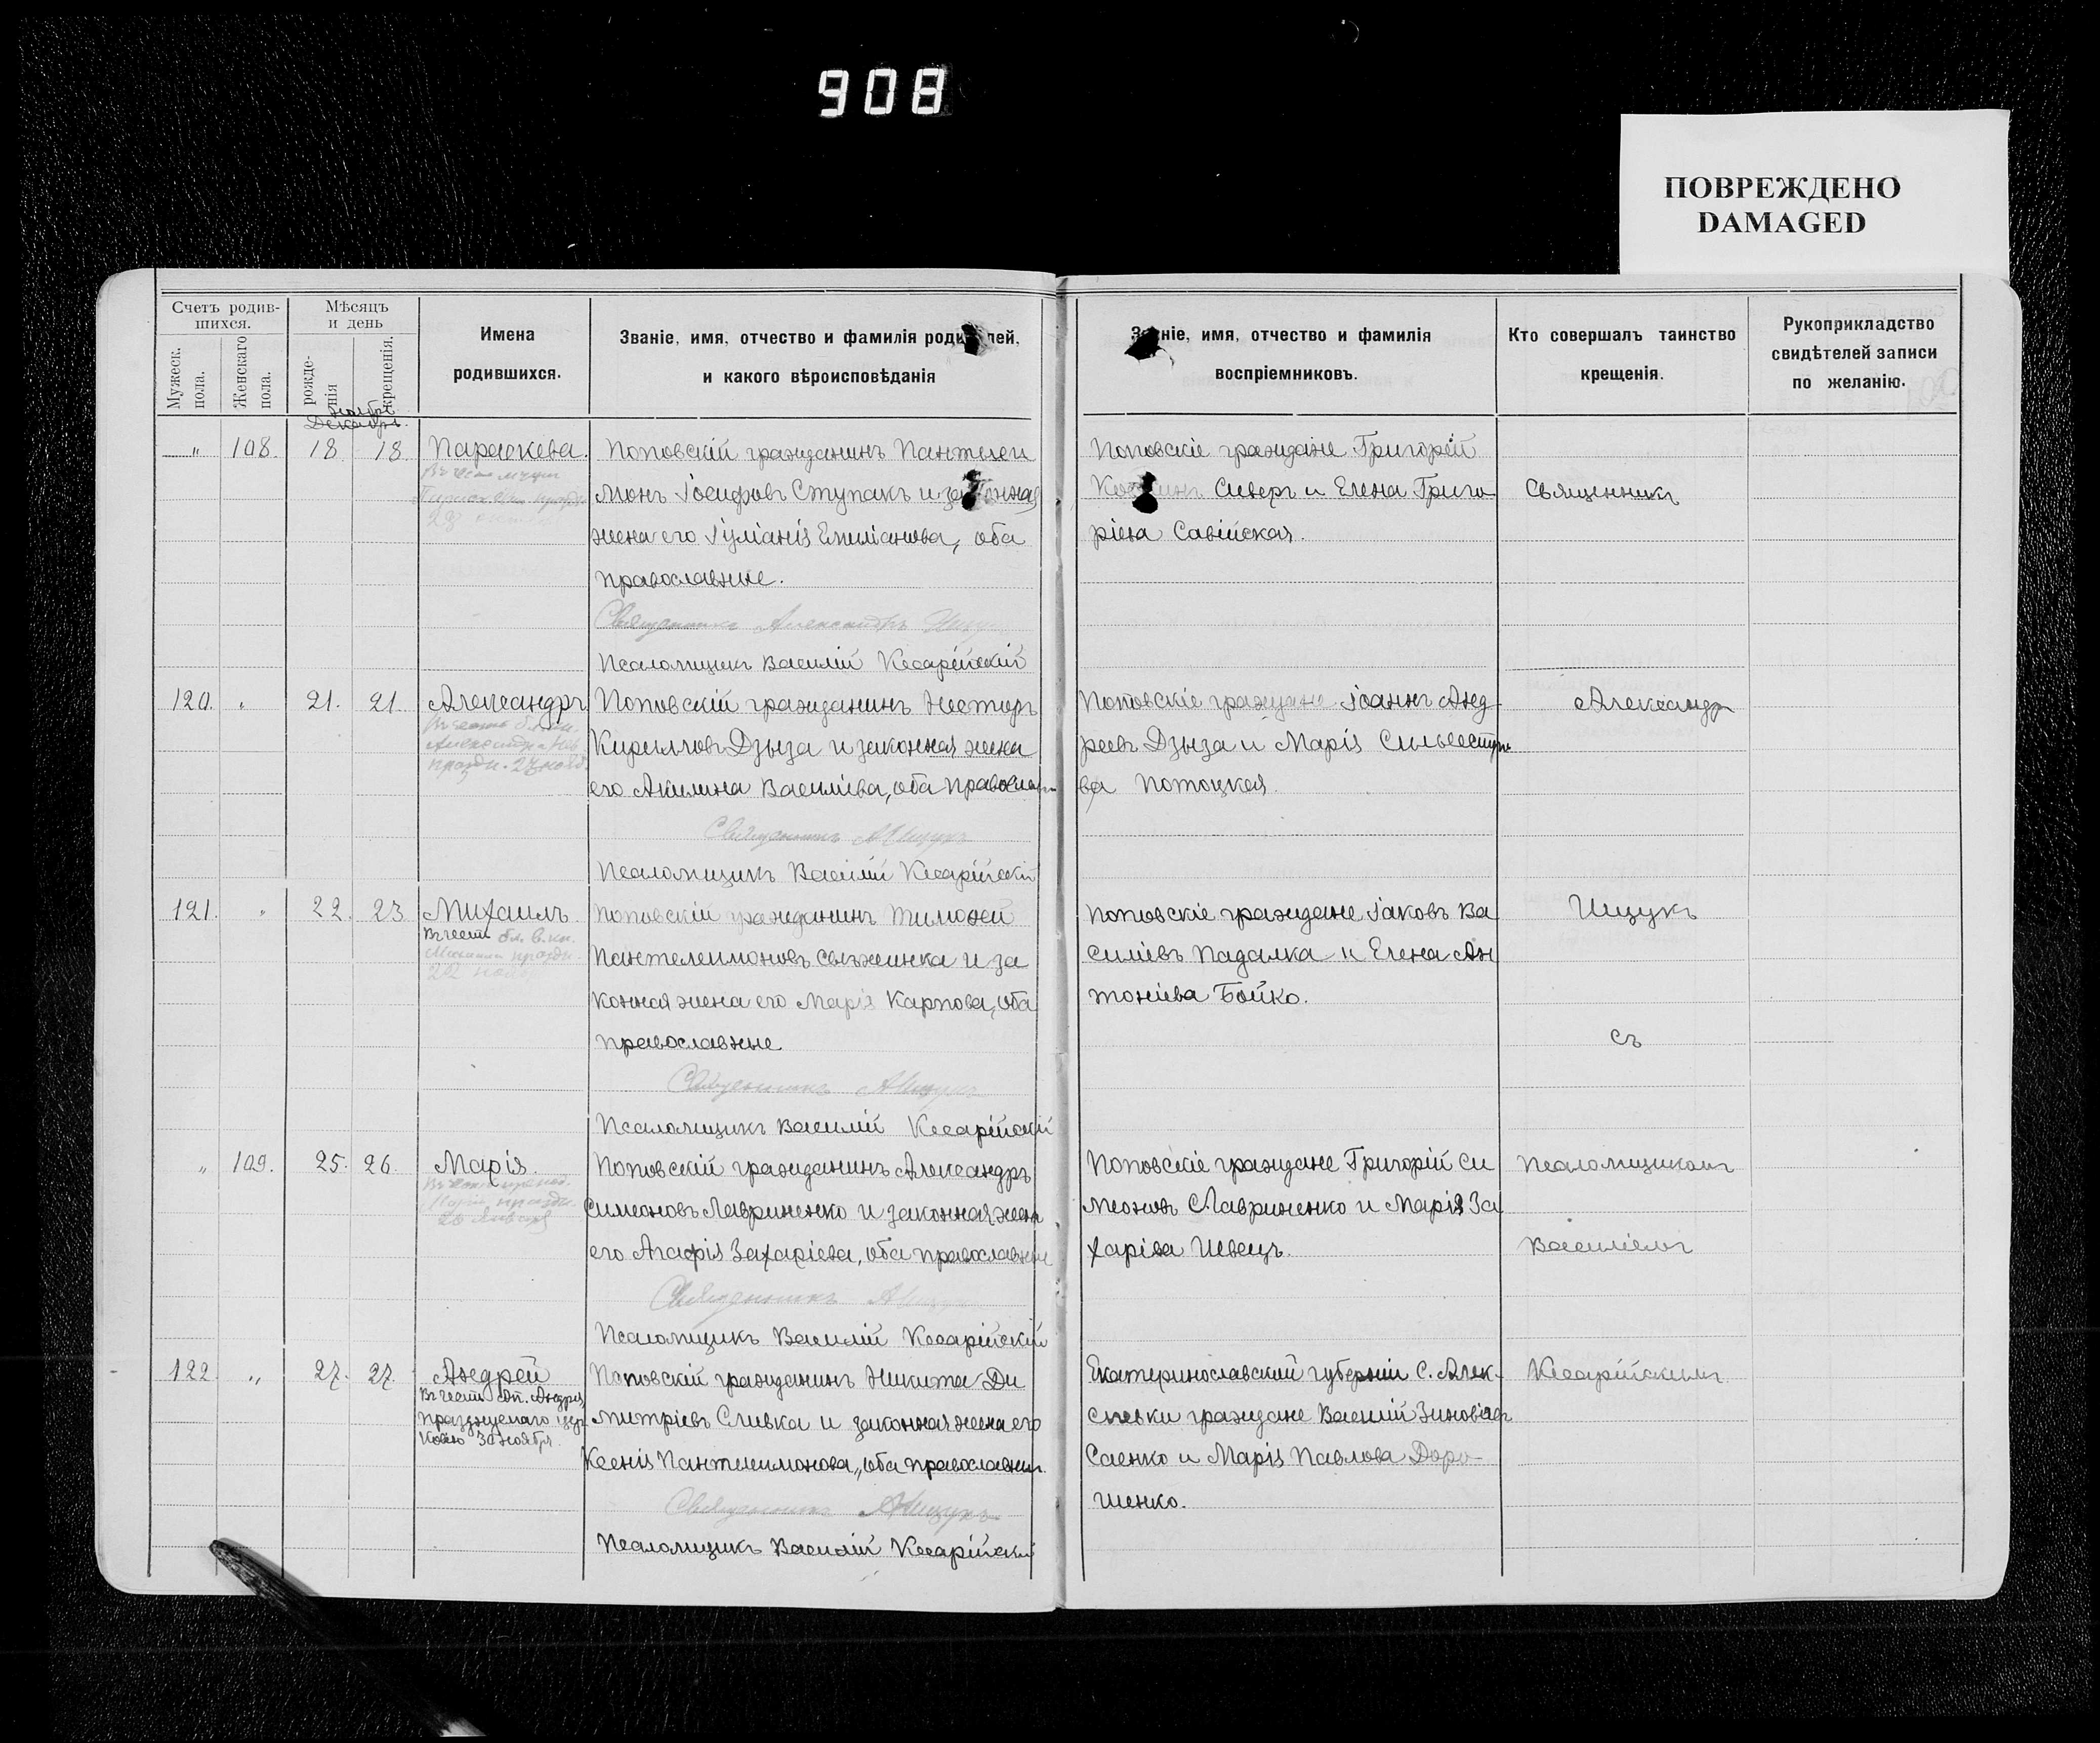 908
ПОВРЕЖДЕНО
DAMAGED
Счетъ родив-
шихся.
Мужеск.
пола.
Женскаго
пола.
Мѣсяцъ
и день
рожде-
нія
крещенія.
Имена
родившихся.
Званіе, имя, отчество и фамилія роди лей,
и какого вѣроисповѣданія
ніе, имя, отчество и фамилія
воспріемниковъ.
Кто совершалъ таинство
крещенія.
Рукоприкладство
свидѣтелей записи
по желанію.
Ноябрь
Декабрь.
" 108. 18 18 Параскева.
Поповскій гражданинъ Пантелеи
монъ Іосифовъ Ступакъ и законная
жена его Іуліанія Емиліанова, оба
православные.
Священникъ Александръ Ищук
Псаломщикъ Василій Кесарійскій
Поповскіе граждане Григорій
Сиверъ и Елена Григо
ріева Савійская.
Священникъ
120. " 21. 21. Александръ
Въ честь
Александра Нев.
праздн. 23 нояб.
Поповскій гражданинъ Несторъ
Кирилловъ Дзыза и законная жена
его Акилина Василіева, оба православн
Священникъ АИщукъ
Псаломщикъ Василій Кесарійскій
Поповскіе граждане Іоаннъ Анд
реевъ Дзыза и Марія Сильвестро
ва Потоцкая.
Александр
121. " 22. 23 Михаилъ
Въ честь бл. в. кн.
Михаила праздн.
22 нояб
Поповскій гражданинъ Тимоѳей
Пантелеимоновъ Свѣженка и за
конная жена его Марія Карпова, оба
православные
Священникъ АИщукъ
Псаломщикъ Василій Кесарійскій
Поповскіе граждане Іаковъ Ва
силіевъ Падалка и Елена Ан
тоніева Бойко.
Ищукъ
съ
" 109. 25. 26. Марія.
праздн.
26 Января
Поповскій гражданинъ Александръ
Симеоновъ Лавриненко и законная жена
его Агафія Захаріева, оба православные
Священникъ АИщук
Псаломщикъ Василій Кесарійскій
Поповскіе граждане Григорій Си
меоновъ Лавриненко и Марія За
харіева Швецъ.
Псаломщикомъ
Василіемъ
122. " 27. 27. Андрей
Въ честь Ап. Андрея,
празднуемаго цер
ковію 30 ноября.
Поповскій гражданинъ Никита Ди
митріевъ Сливка и законная жена его
Ксенія Пантелеимонова, оба православные.
Священникъ АИщукъ
Псаломщикъ Василій Кесарійскій
Екатеринославской губерніи С. Алек-
сѣевки граждане Василій Зиновіевъ
Саенко и Марія Павлова Доро-
шенко.
Кесарійскимъ